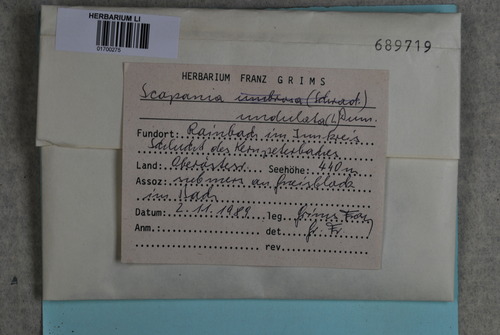 HERBARIUM LI
01700275
689719
HERBARIUM FRANZ GRIMS
Scapania umbrosa (Schrad.)
undulata (L.) Dum.
Fundort: Rainbach im Innkreis
Schlucht des
Land: Oberösterr. Seehöhe: 440 m
Assoz: an Gneisblock
im Bach
Datum: 2.11.1989 leg. Grims Franz
Anm.: det. Gr. Fr.
rev.